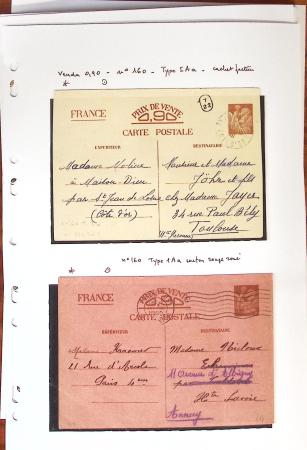 Vendu 0,90 - n° 160 - Type 1Aa - cachet facteur
PRIX DE VENTE
0,90
FRANCE
CARTE POSTALE
EXPÉDITEUR
DESTINATAIRE
Madame Moline
à Maison-Dieu
par St Jean de Losne
(Côte d'or)
Monsieur et Madame
et fils
chez Madame Jayer
34 rue Paul
Toulouse
n° 160 Type 1Aa carton rouge rosé
PRIX DE VENTE
FRANCE
CARTE POSTALE
EXPÉDITEUR
DESTINATAIRE
Madame
21 rue d'Arcole
Paris 4ème
Madame
11 Avenue d'Albigny
Hte Savoie
Annecy